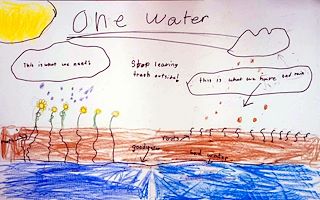 One Water
This is what we need!
Stop leaving
trash outside!
this is what we have
roots
good year
bad